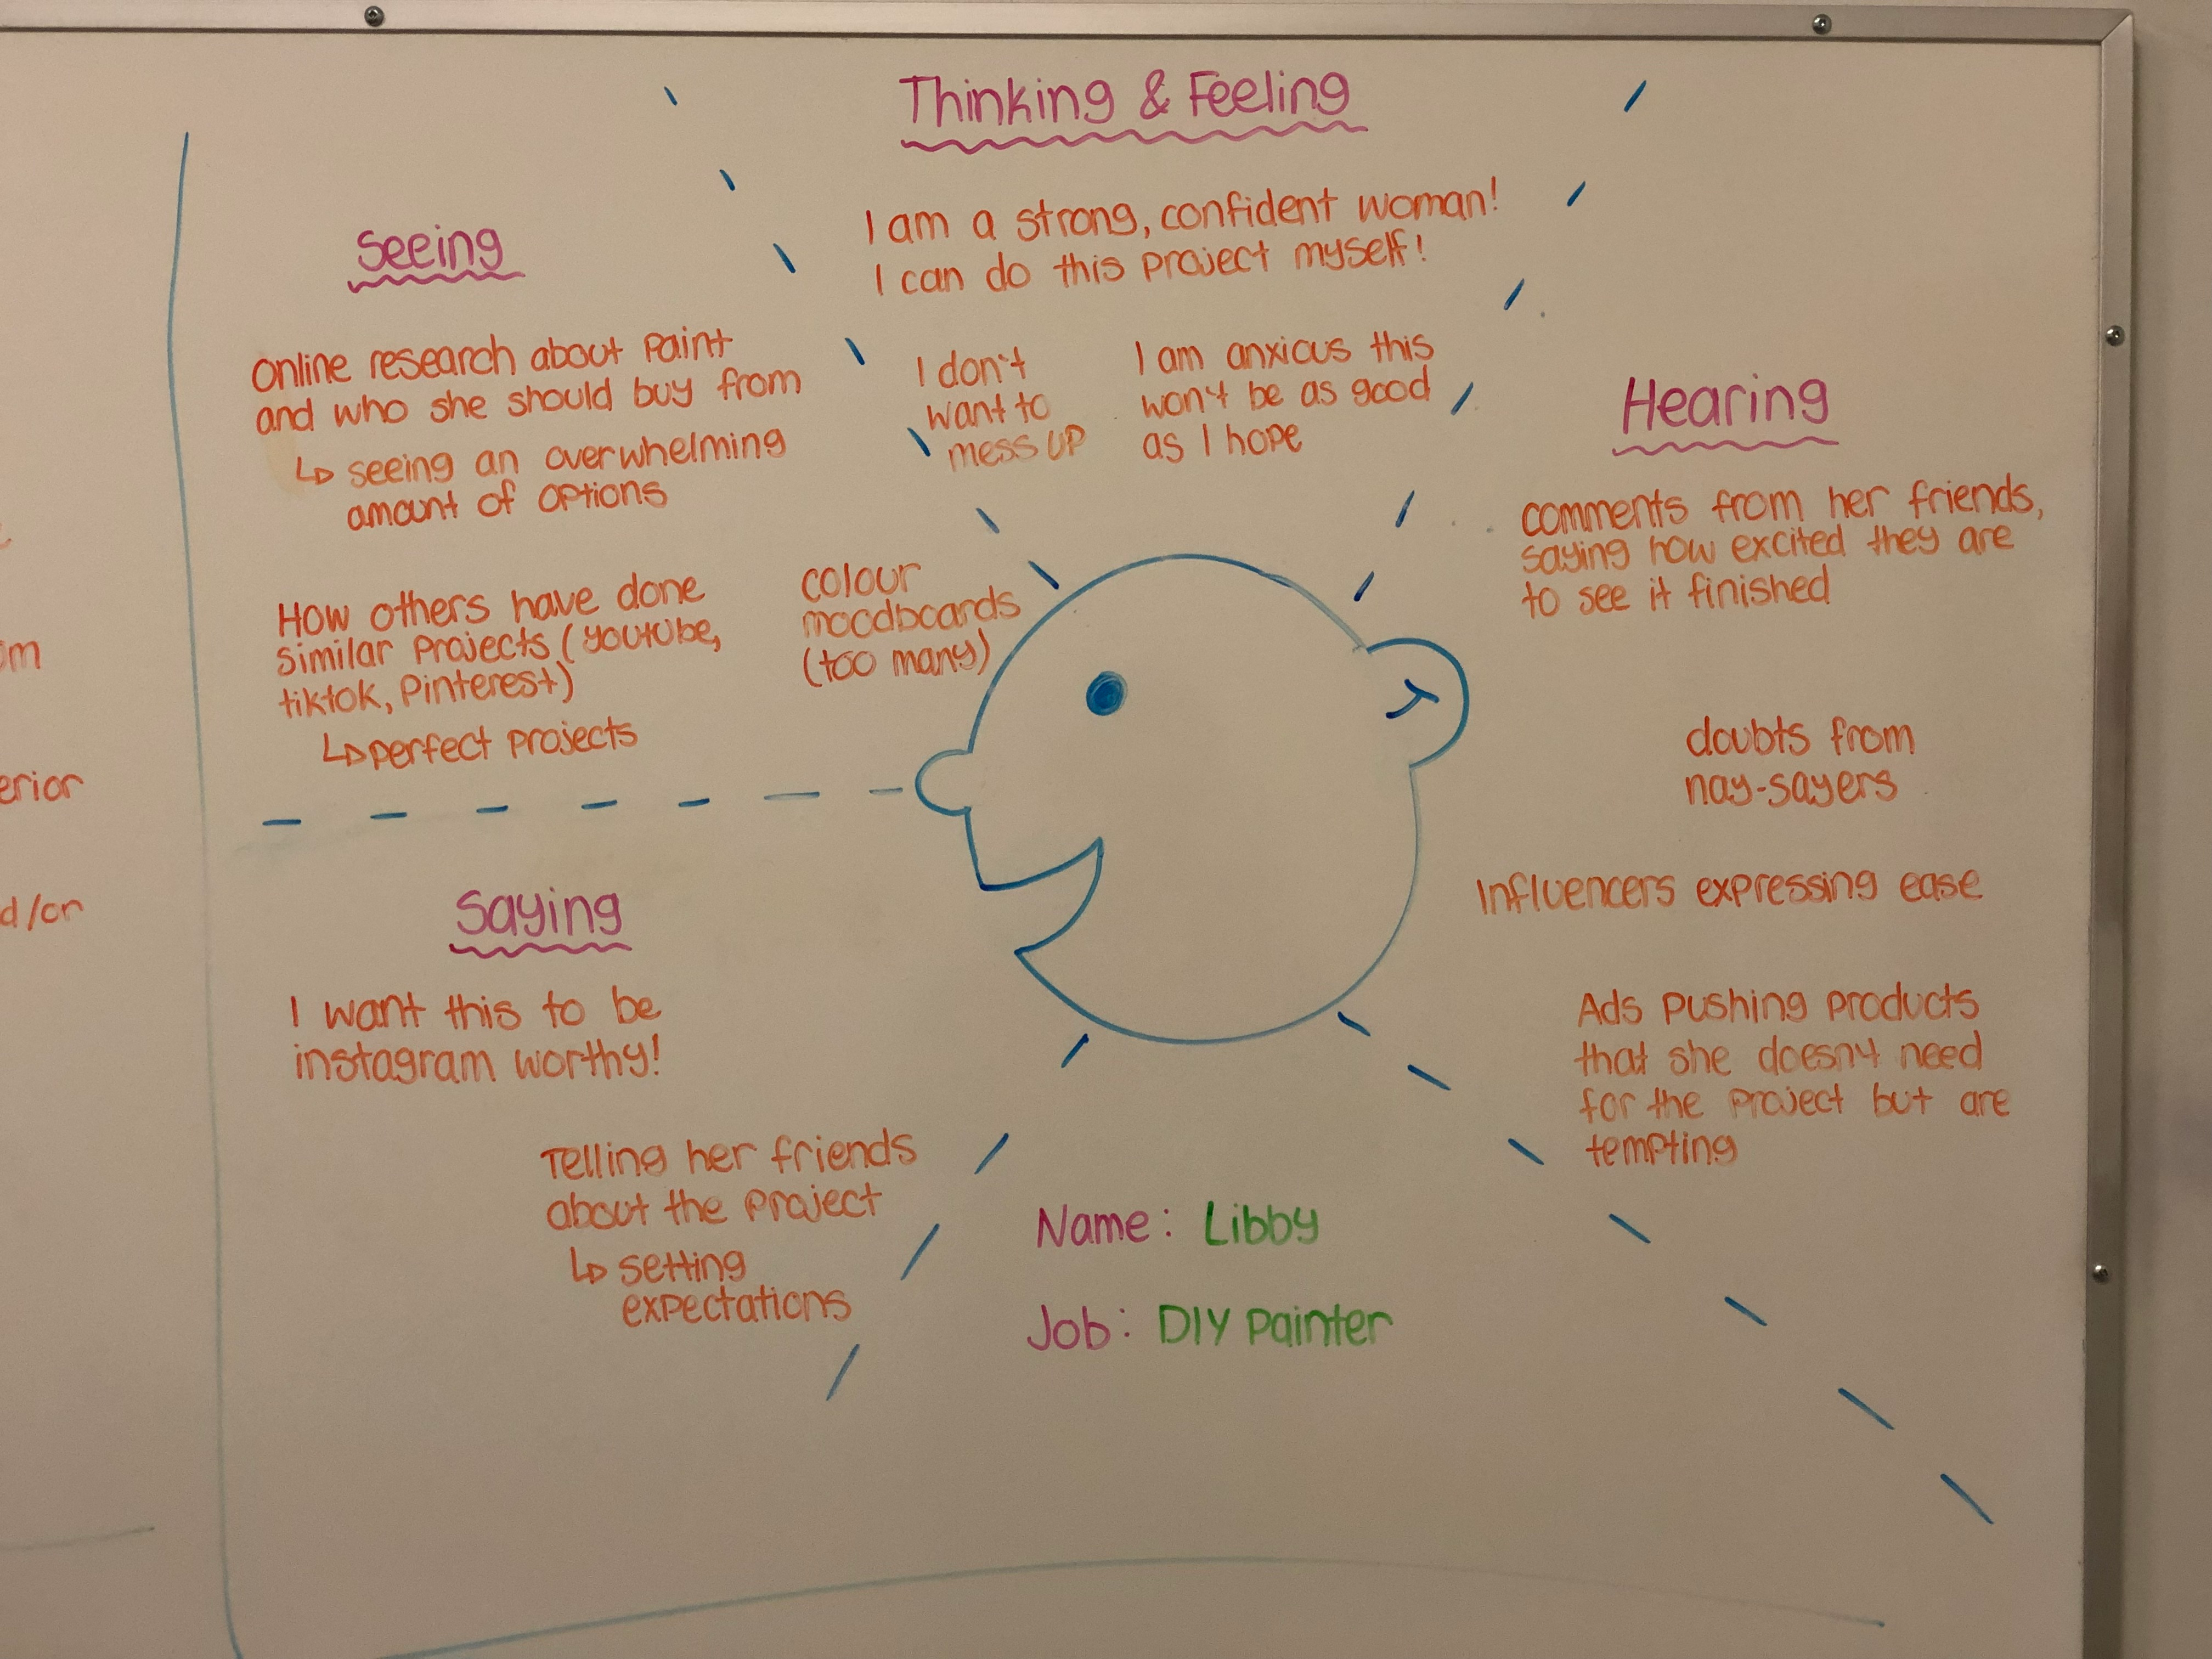 Thinking & Feeling
I am a strong, confident woman!
I can do this project myself!
I don't
want to
mess up
I am anxious this
won't be as good
as I hope
Seeing
Online research about paint
and who she should buy from
↳ seeing an overwhelming
amount of options
How others have done
similar projects (youtube,
tiktok, Pinterest)
↳ perfect projects
colour
moodboards
(too many)
Hearing
comments from her friends,
saying how excited they are
to see it finished
doubts from
nay-sayers
Influencers expressing ease
Ads pushing products
that she doesn't need
for the project but are
tempting
Saying
I want this to be
instagram worthy!
Telling her friends
about the project
↳ setting
expectations
Name: Libby
Job: DIY Painter
om
erior
d/or